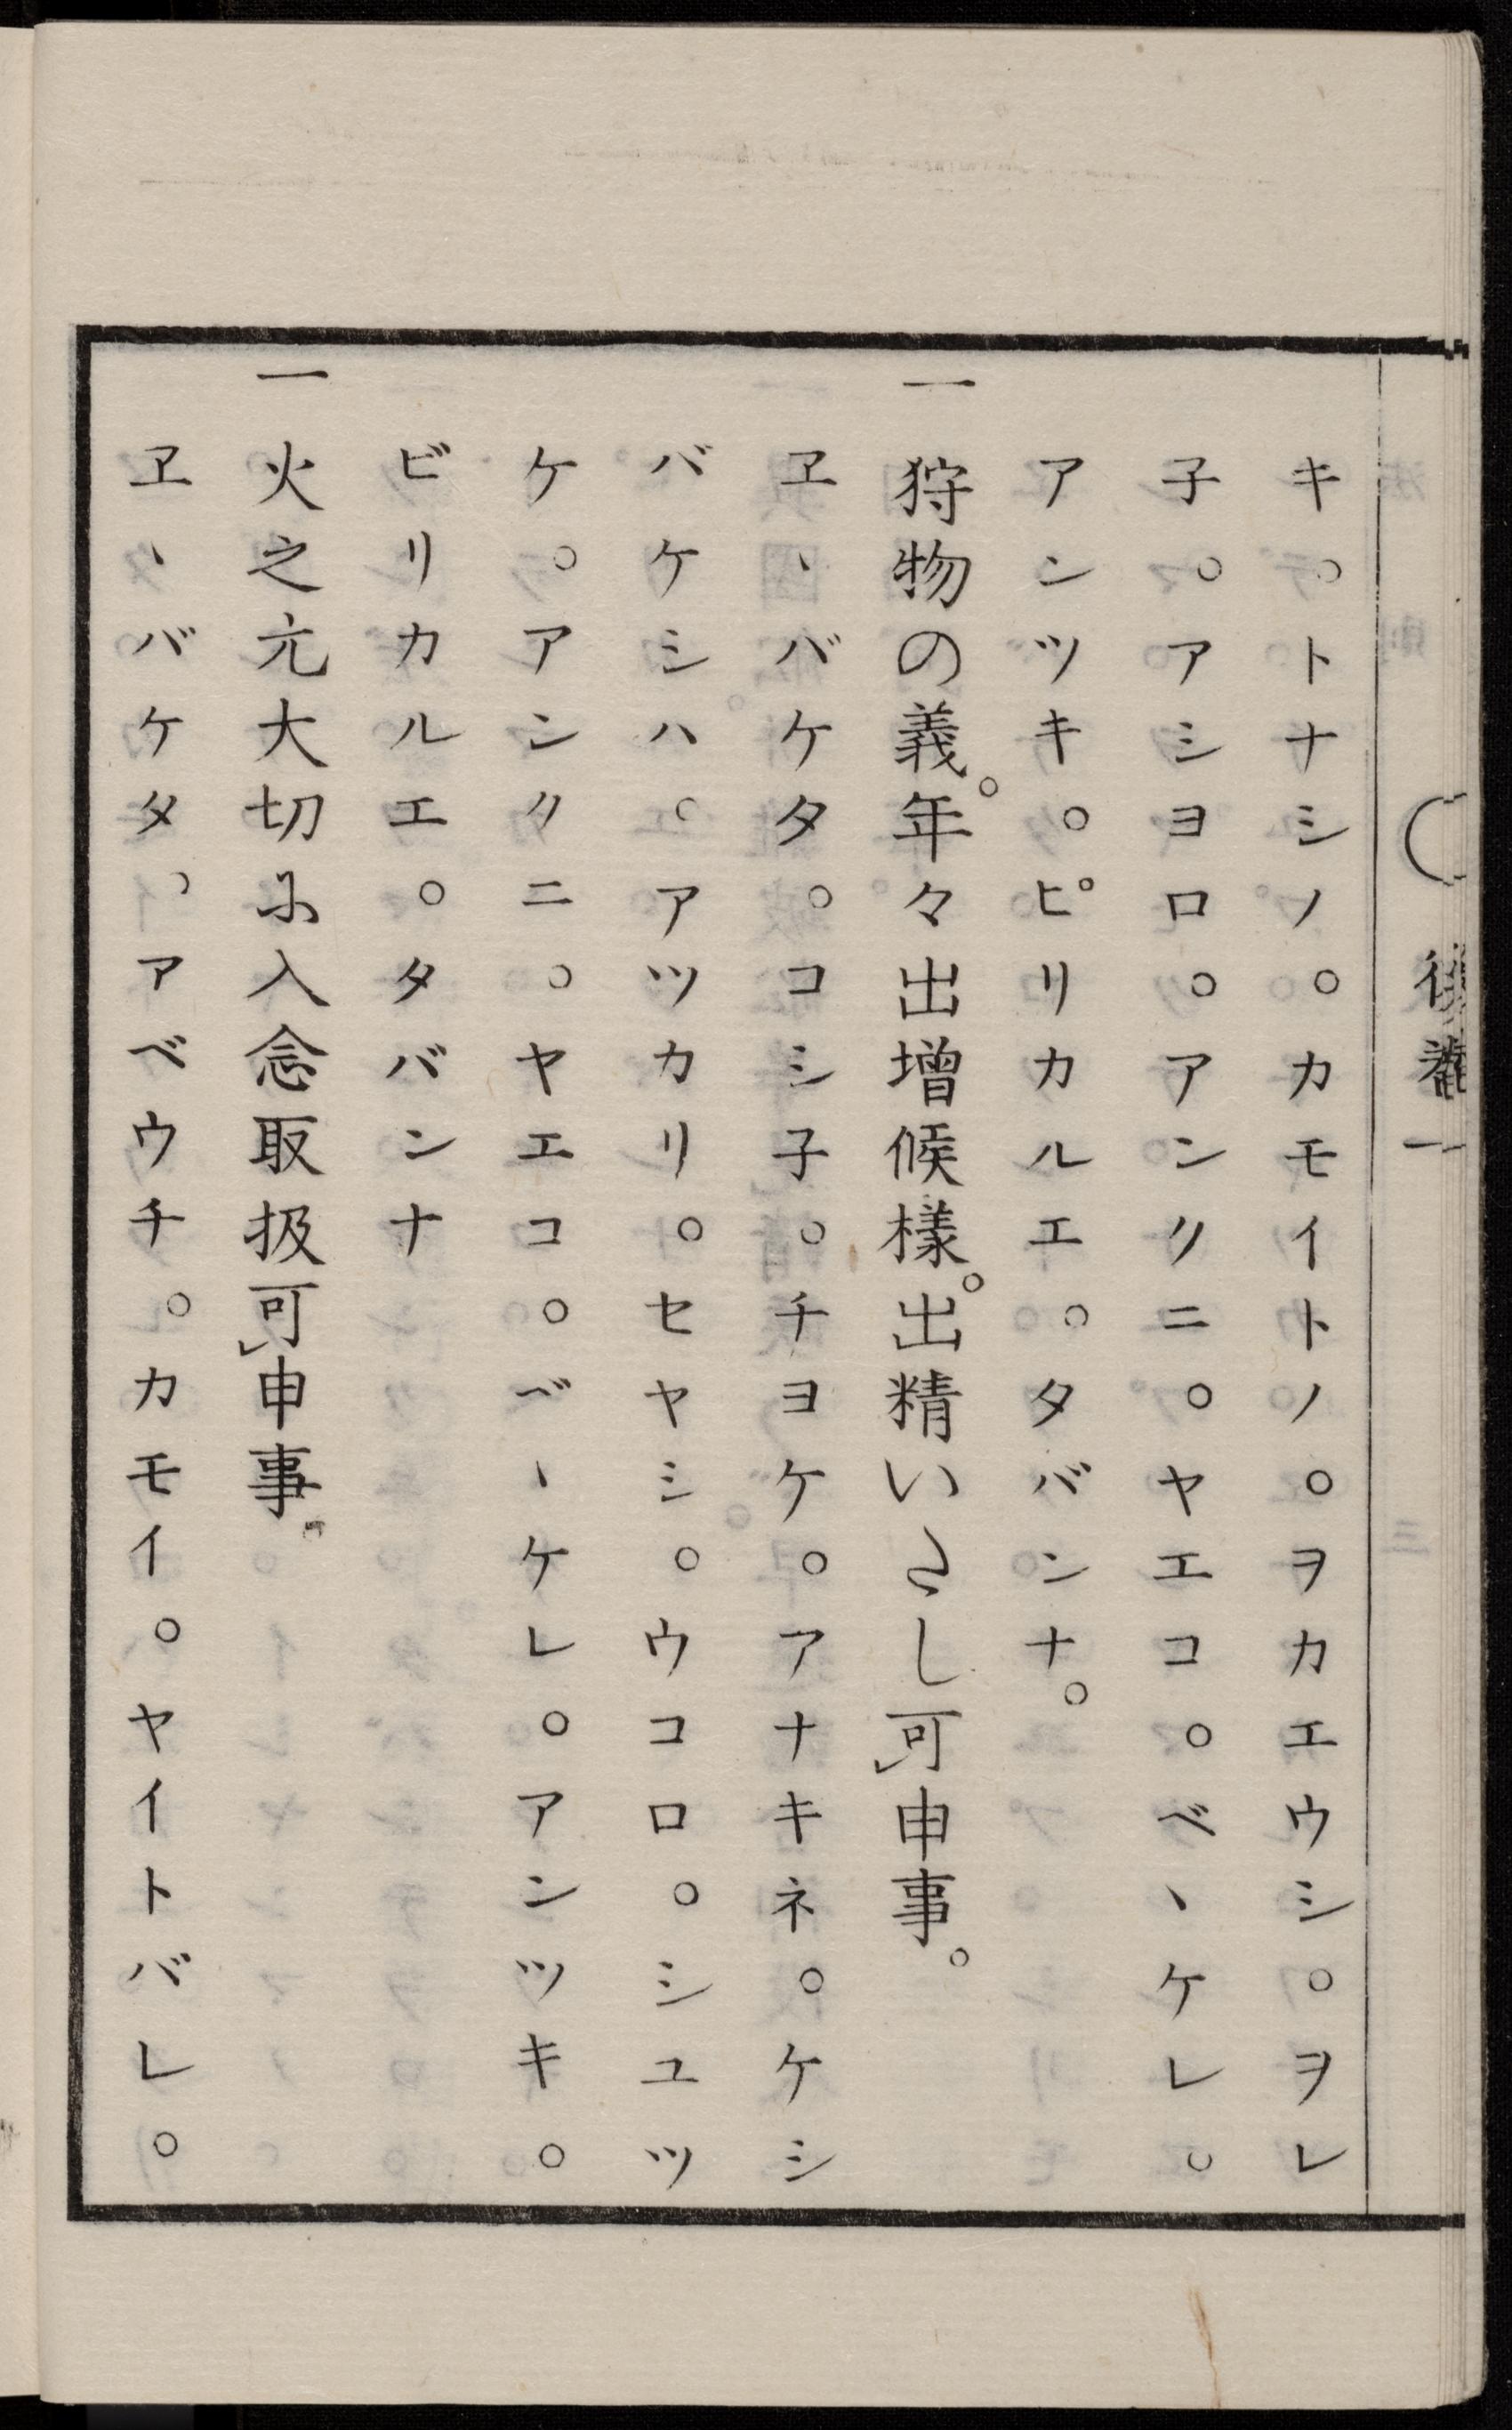 キ。トナシノ。カモイトノ。ヲカエウシ。ヲレ
子。アシヨロ。アンクニ。ヤエコ。ベヽケレ。
アンツキ。ピリカルエ。タバンナ。
一 狩物の義。年々出増候様。出精いたし可申事。
ヱヽバケタ。コシ子。チヨケ。アナキネ。ケシ
バケシハ。アツカリ。セヤシ。ウコロ。シユツ
ケ。アンクニ。ヤエコ。ベヽケレ。アンツキ。
ビリカルエ。タバンナ
一 火之元大切に入念取扱可申事。
ヱヽバケタ、アベウチ。カモイ。ヤイトバレ。